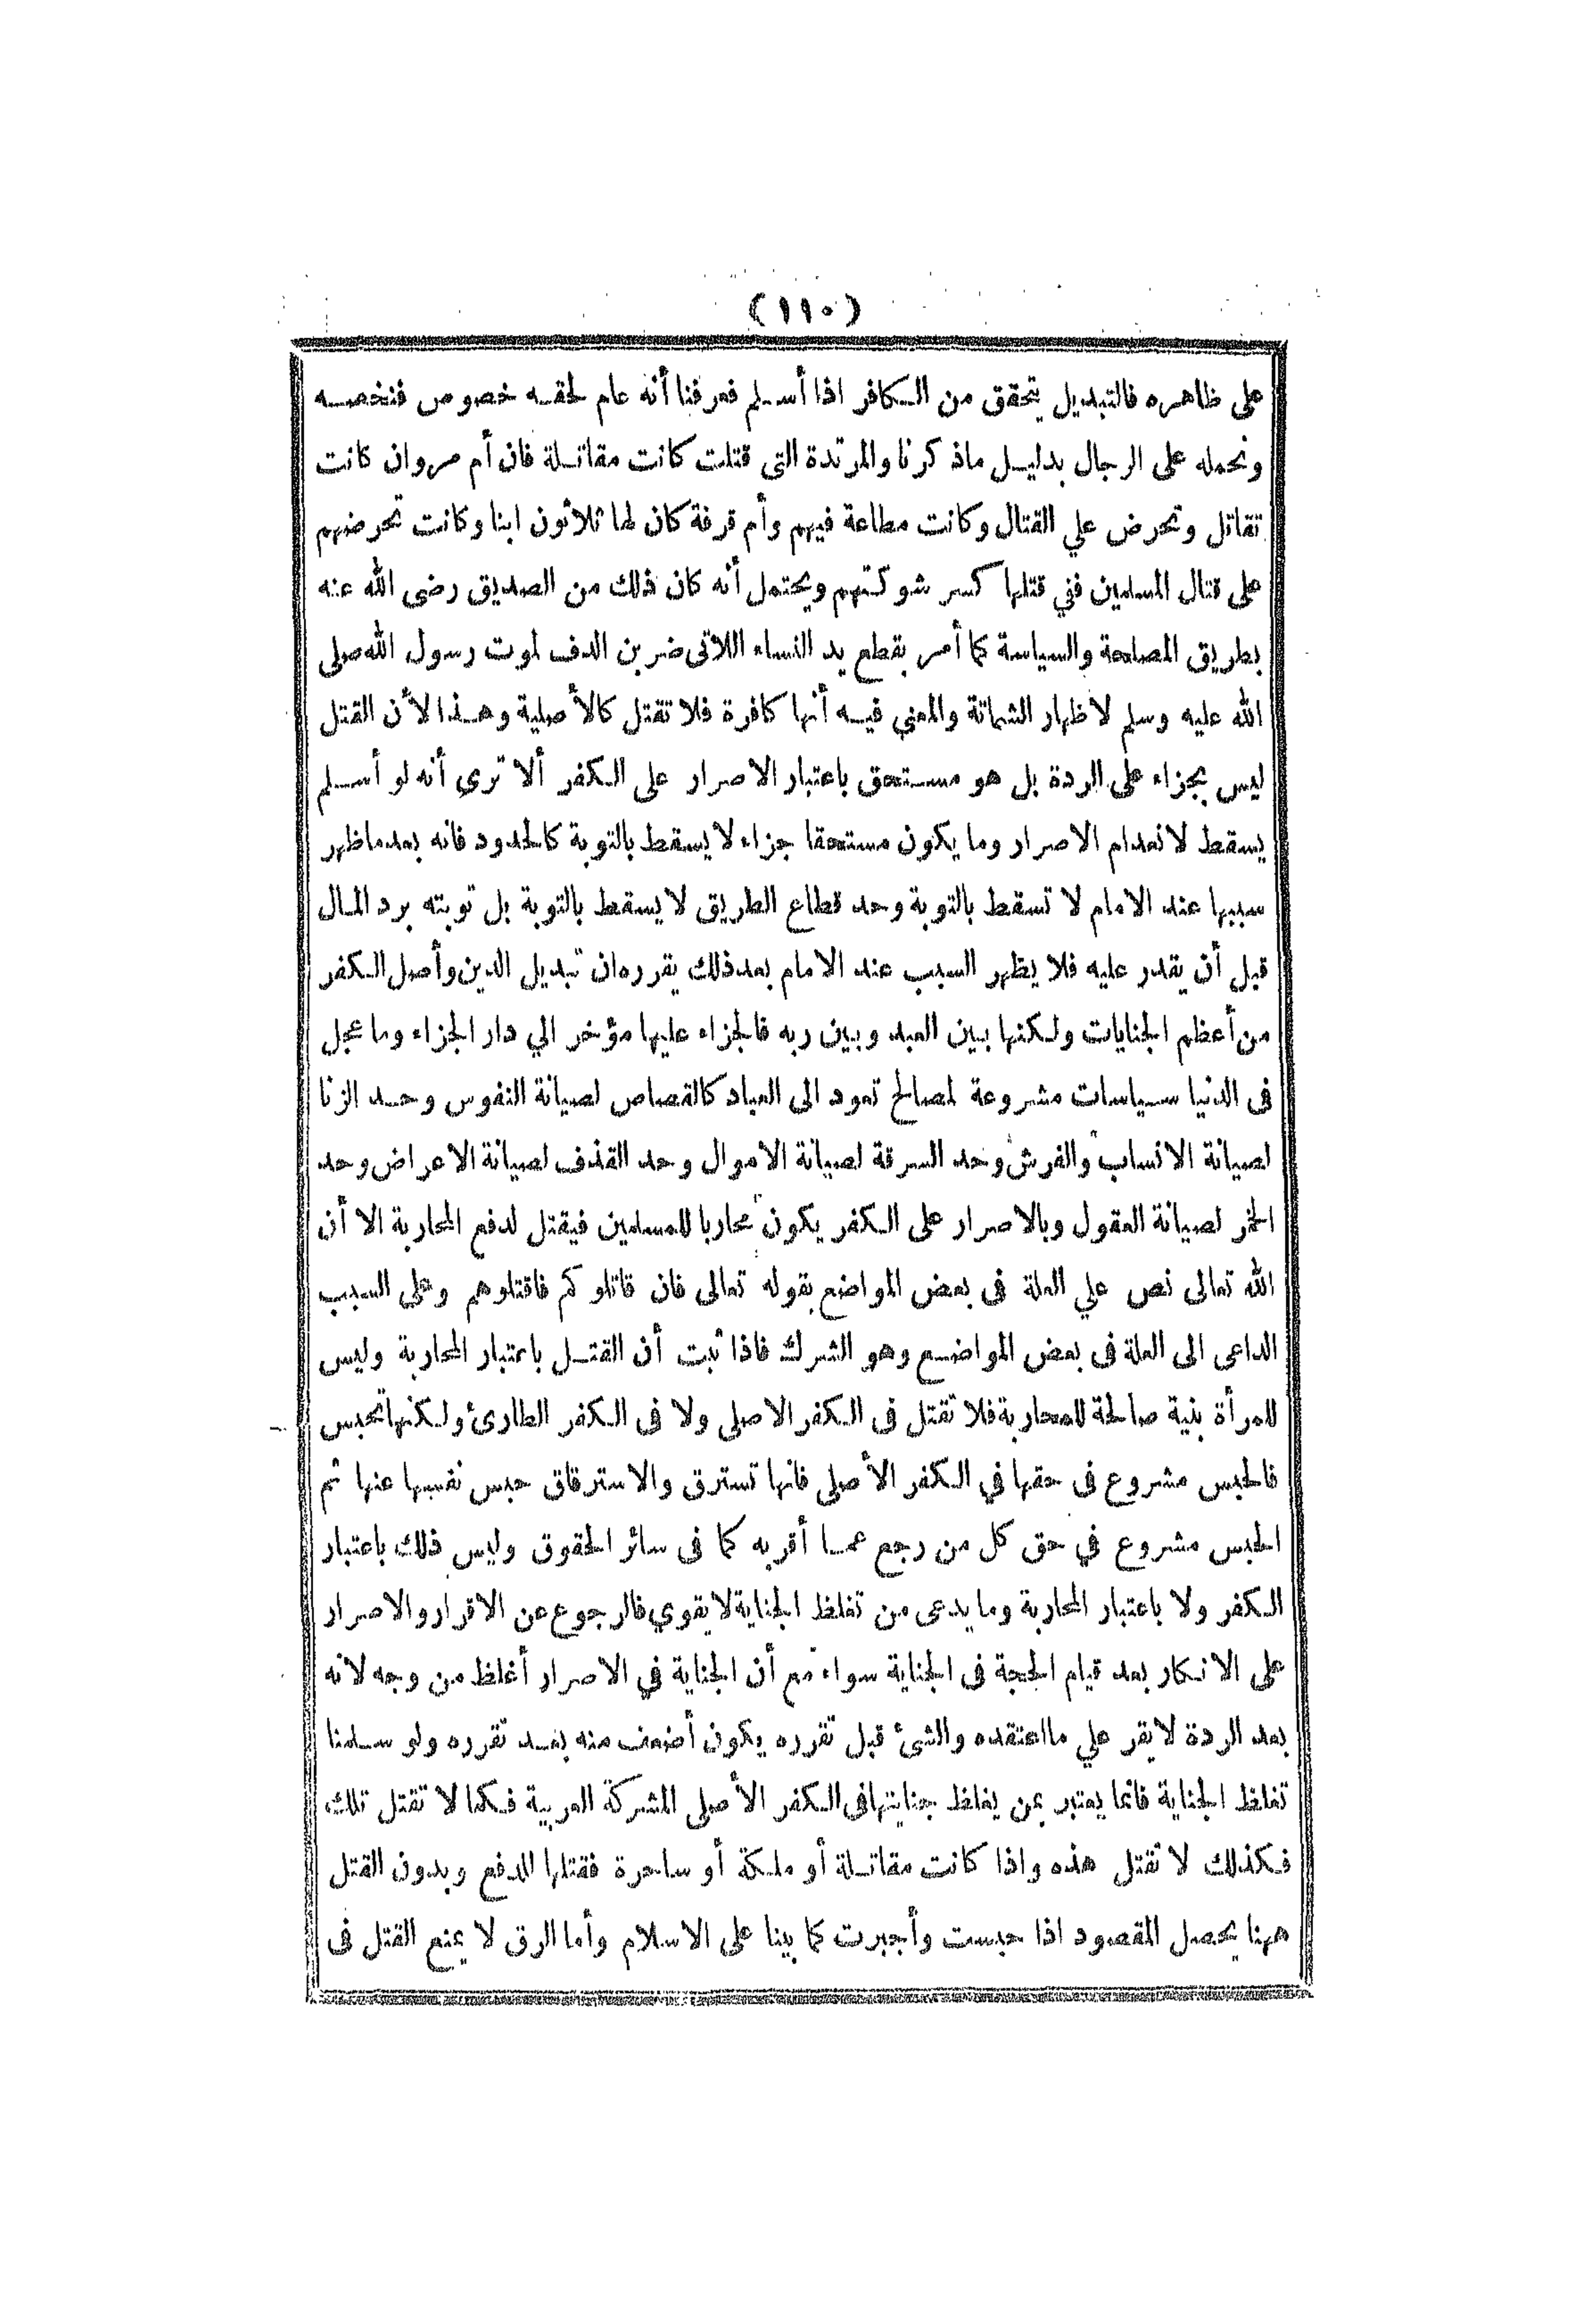 (١١٠)
على ظاهره فالتبديل يتحقق من الكافر اذا أسلم فعرفنا أنه عام لحقه خصوص فنخصه
ونحمله على الرجال بدليل ماذكرنا والمرتدة التى قتلت كانت مقاتلة فان أم مروان كانت
تقاتل وتحرض علي القتال وكانت مطاعة فيهم وأم قرفة كان لها ثلاثون ابنا وكانت تحرضهم
على قتال المسلمين ففي قتلها كسر شوكتهم ويحتمل أنه كان ذلك من الصديق رضى الله عنه
بطريق المصلحة والسياسة كما أمر بقطع يد النساء اللاتى ضربن الدف لموت رسول الله صلى
الله عليه وسلم لاظهار الشماتة والمعني فيه أنها كافرة فلا تقتل كالأصلية وهذا لأن القتل
ليس بجزاء على الردة بل هو مستحق باعتبار الاصرار على الكفر ألا تري أنه لو أسلم
يسقط لانعدام الاصرار وما يكون مستحقا جزاء لا يسقط بالتوبة كالحدود فانه بعد ماظهر
سببها عند الامام لا تسقط بالتوبة وحد قطاع الطريق لا يسقط بالتوبة بل توبته برد المال
قبل أن يقدر عليه فلا يظهر السبب عند الامام بعد ذلك يقرره ان تبديل الدين وأصل الكفر
من أعظم الجنايات ولكنها بين العبد وبين ربه فالجزاء عليها مؤخر الي دار الجزاء وما عجل
فى الدنيا سياسات مشروعة لمصالح تعود الى العباد كالقصاص لصيانة النفوس وحد الزنا
لصيانة الانساب والفرش وحد السرقة لصيانة الاموال وحد القذف لصيانة الاعراض وحد
الخمر لصيانة العقول وبالاصرار على الكفر يكون محاربا للمسلمين فيقتل لدفع المحاربة الا أن
الله تعالى نص علي العلة فى بعض المواضع بقوله تعالى فان قاتلوكم فاقتلوهم وعلى السبب
الداعى الى العلة فى بعض المواضع وهو الشرك فاذا ثبت أن القتل باعتبار المحاربة وليس
للمرأة بنية صالحة للمحاربة فلا تقتل فى الكفر الاصلى ولا فى الكفر الطارئ ولكنها تحبس
فالحبس مشروع فى حقها في الكفر الأصلى فانها تسترق والاسترقاق حبس نفسها عنها ثم
الحبس مشروع في حق كل من رجع عما أقر به كما فى سائر الحقوق وليس ذلك باعتبار
الكفر ولا باعتبار المحاربة وما يدعى من تغلظ الجناية لا يقوي فالرجوع عن الاقرار والاصرار
على الانكار بعد قيام الحجة فى الجناية سواء مع أن الجناية في الاصرار أغلظ من وجه لانه
بعد الردة لا يقر علي مااعتقده والشئ قبل تقرره يكون أضعف منه بعد تقرره ولو سلمنا
تغلظ الجناية فانما يعتبر بمن يغلظ جنايتها فى الكفر الأصلى المشركة العربية فكما لا تقتل تلك
فكذلك لا تقتل هذه واذا كانت مقاتلة أو ملكة أو ساحرة فقتلها للدفع وبدون القتل
ههنا يحصل المقصود اذا حبست وأجبرت كما بينا على الاسلام وأما الرق لا يمنع القتل فى